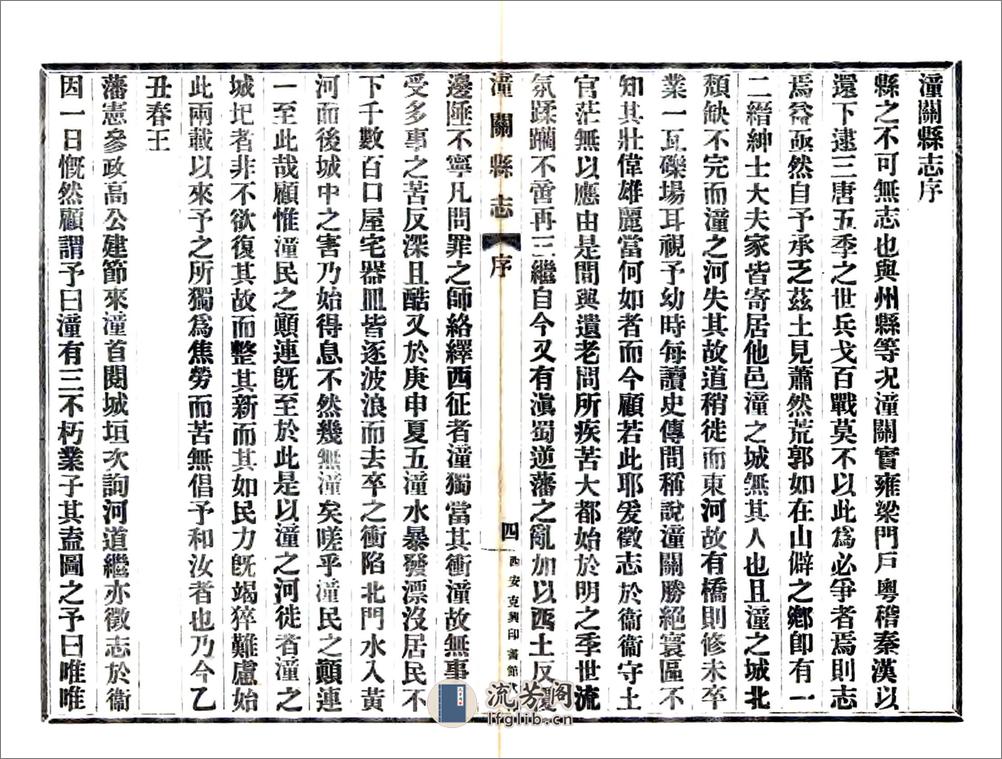 潼關縣志序
縣之不可無志也與州縣等況潼關實雍梁門戶粵稽秦漢以
還下逮三唐五季之世兵戈百戰莫不以此爲必爭者焉則志
焉益亟然自予承乏茲土見蕭然荒郭如在山僻之鄉卽有一
二縉紳士大夫家皆寄居他邑潼之城無其人也且潼之城北
頹缺不完而潼之河失其故道稍徙而東河故有橋則修未卒
業一瓦礫場耳視予幼時每讀史傳間稱說潼關勝絕寰區不
知其壯偉雄麗當何如者而今顧若此耶爰徵志於衞衞守土
官茫無以應由是間與遺老問所疾苦大都始於明之季世流
氛蹂躪不啻再三繼自今又有滇蜀逆藩之亂加以西土反覆
潼關縣志 序 四 西安克興印書館
邊陲不寧凡問罪之師絡繹西征者潼獨當其衝潼故無事
受多事之苦反深且酷又於庚申夏五潼水暴發漂沒居民不
下千數百口屋宅器皿皆逐波浪而去卒之衝陷北門水入黃
河而後城中之害乃始得息不然幾無潼矣嗟乎潼民之顛連
一至此哉顧惟潼民之顛連旣至於此是以潼之河徙者潼之
城圮者非不欲復其故而整其新而其如民力旣竭猝難慮始
此兩載以來予之所獨爲焦勞而苦無倡予和汝者也乃今乙
丑春王
藩憲參政高公建節來潼首閱城垣次詢河道繼亦徵志於衞
因一日慨然顧謂予曰潼有三不朽業子其盍圖之予曰唯唯
流芳閣
lfglib.cn